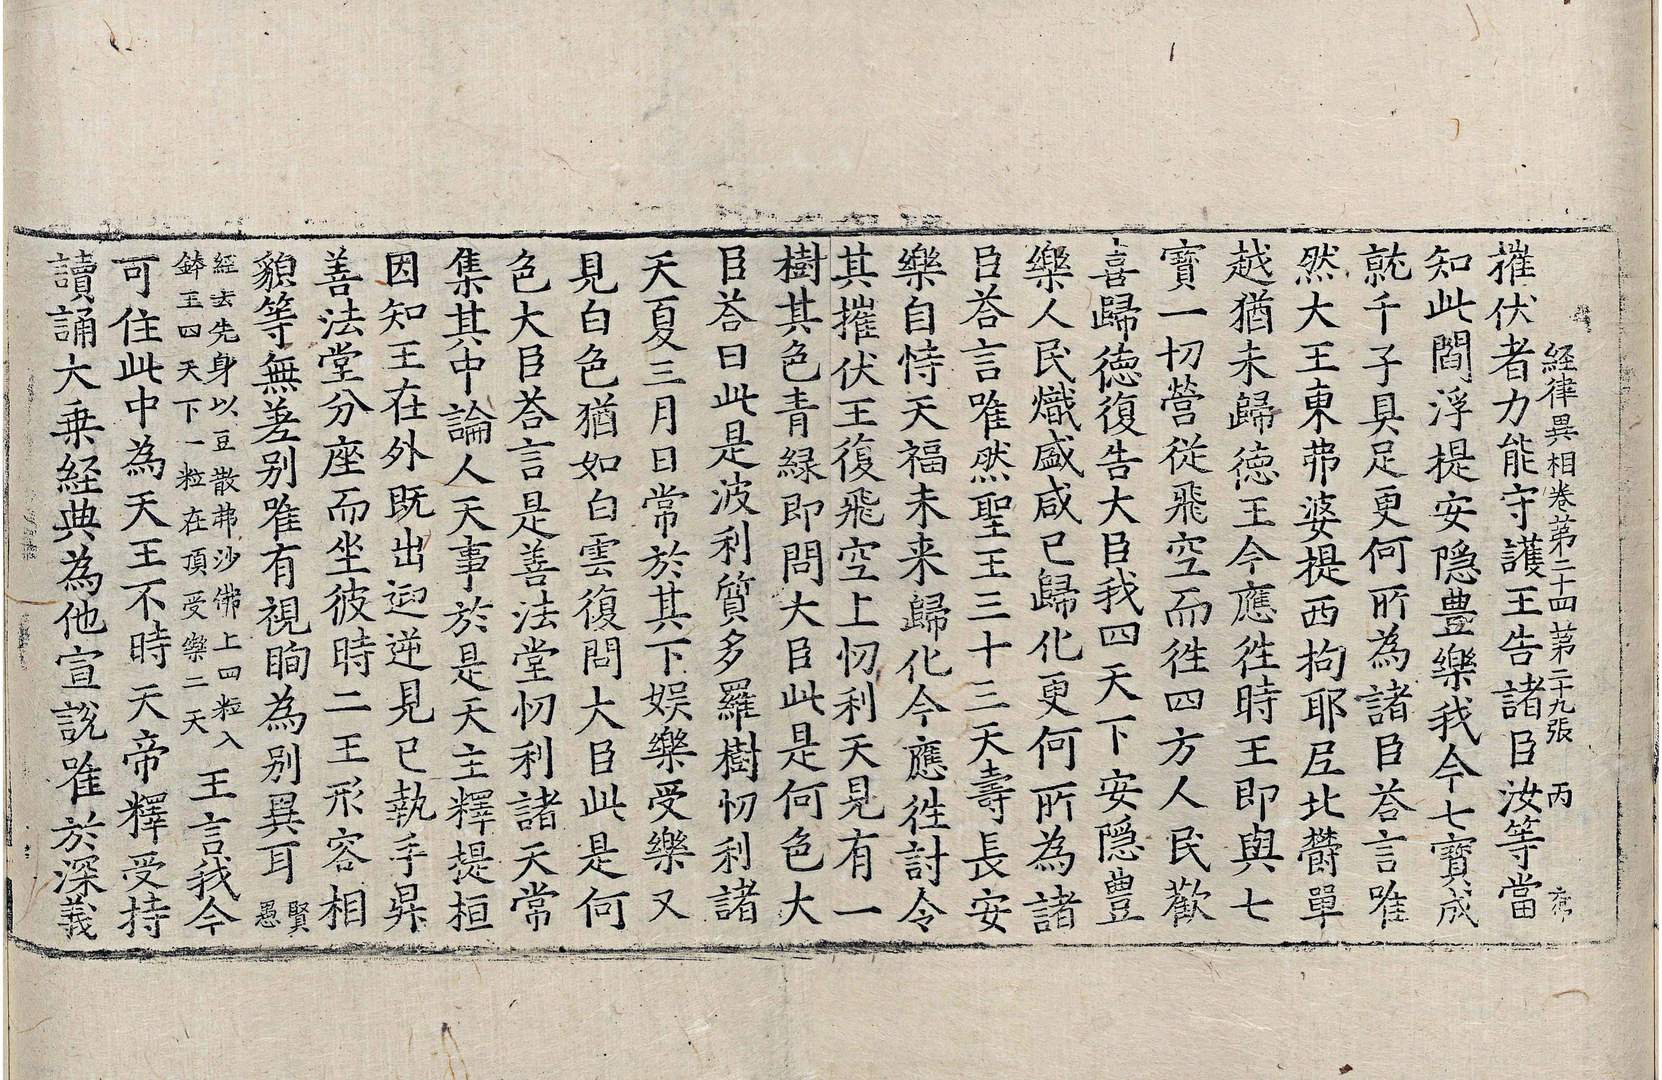 経律異相卷第二十四 第二十九張 丙
摧伏者力能守護王告諸臣汝等當
知此閻浮提安隱豊樂我今七寶成
就千子具足更何所為諸臣荅言唯
然大王東弗婆提西拘耶尼北欝單
越猶未歸徳王今應徃時王即與七
寶一切營從飛空而徃四方人民歡
喜歸徳復告大臣我四天下安隱豊
樂人民熾盛咸已歸化更何所為諸
臣荅言唯然聖王三十三天壽長安
樂自恃天福未来歸化今應徃討令
其摧伏王復飛空上忉利天見有一
樹其色青緑即問大臣此是何色大
臣荅曰此是波利質多羅樹忉利諸
天夏三月日常於其下娛樂受樂又
見白色猶如白雲復問大臣此是何
色大臣荅言是善法堂忉利諸天常
集其中論人天事於是天主釋提桓
因知王在外既出迎逆見已執手昇
善法堂分座而坐彼時二王形容相
貌等無差别唯有視眴為别異耳賢愚
經云先身以豆散弗沙佛上四粒入
鉢王四天下一粒在頂受樂二天
王言我今
可住此中為天王不時天帝釋受持
讀誦大乗経典為他宣說唯於深義